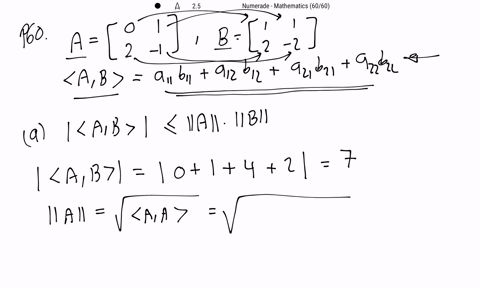 2.5 Numerade - Mathematics (60/60)
P60. A = [0 1
2 -1], B = [1 1
2 -2]
<A,B> = a₁₁b₁₁ + a₁₂b₁₂ + a₂₁b₂₁ + a₂₂b₂₂ ←
(a) |<A,B>| ≤ ||A|| · ||B||
|<A,B>| = |0+1+4+2| = 7
||A|| = √<A,A> = √